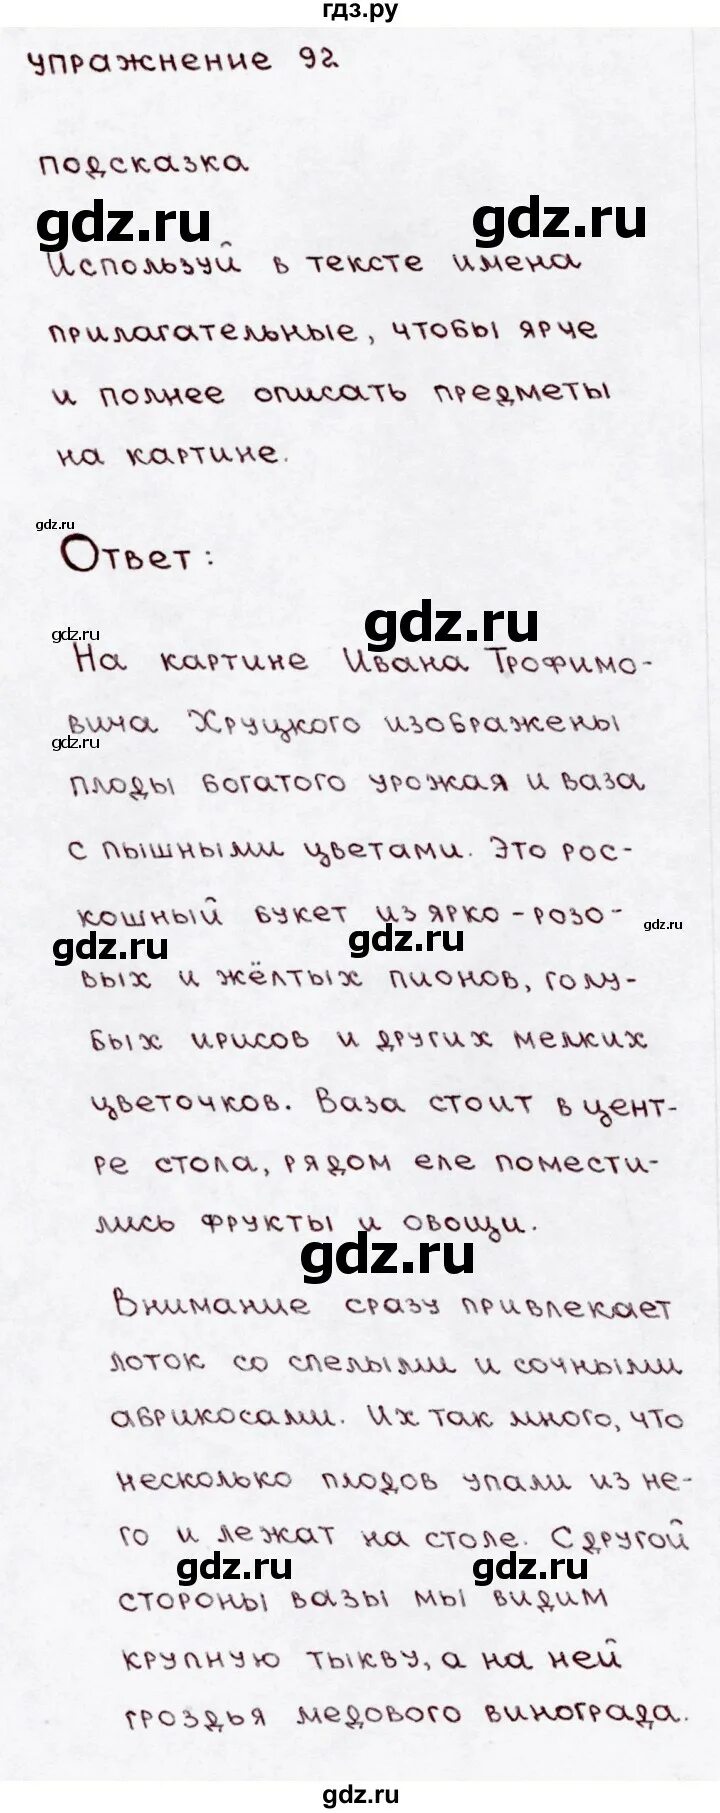 гдз.ру
упражнение 92
подсказка
gdz.ru
gdz.ru
Используй в тексте имена
прилагательные, чтобы ярче
и полнее описать предметы
на картине.
gdz.ru
Ответ:
gdz.ru
gdz.ru
На картине Ивана Трофимо-
вича Хруцкого изображены
gdz.ru
плоды богатого урожая и ваза
с пышными цветами. Это рос-
кошный букет из ярко-розо-
gdz.ru
gdz.ru
gdz.ru
вых и жёлтых пионов, голу-
бых ирисов и других мелких
цветочков. Ваза стоит в цент-
ре стола, рядом еле помести-
лись фрукты и овощи.
gdz.ru
Внимание сразу привлекает
лоток со спелыми и сочными
абрикосами. Их так много, что
несколько плодов упали из не-
го и лежат на столе. С другой
gdz.ru
gdz.ru
стороны вазы мы видим
крупную тыкву, а на ней
гроздья медового винограда.
gdz.ru